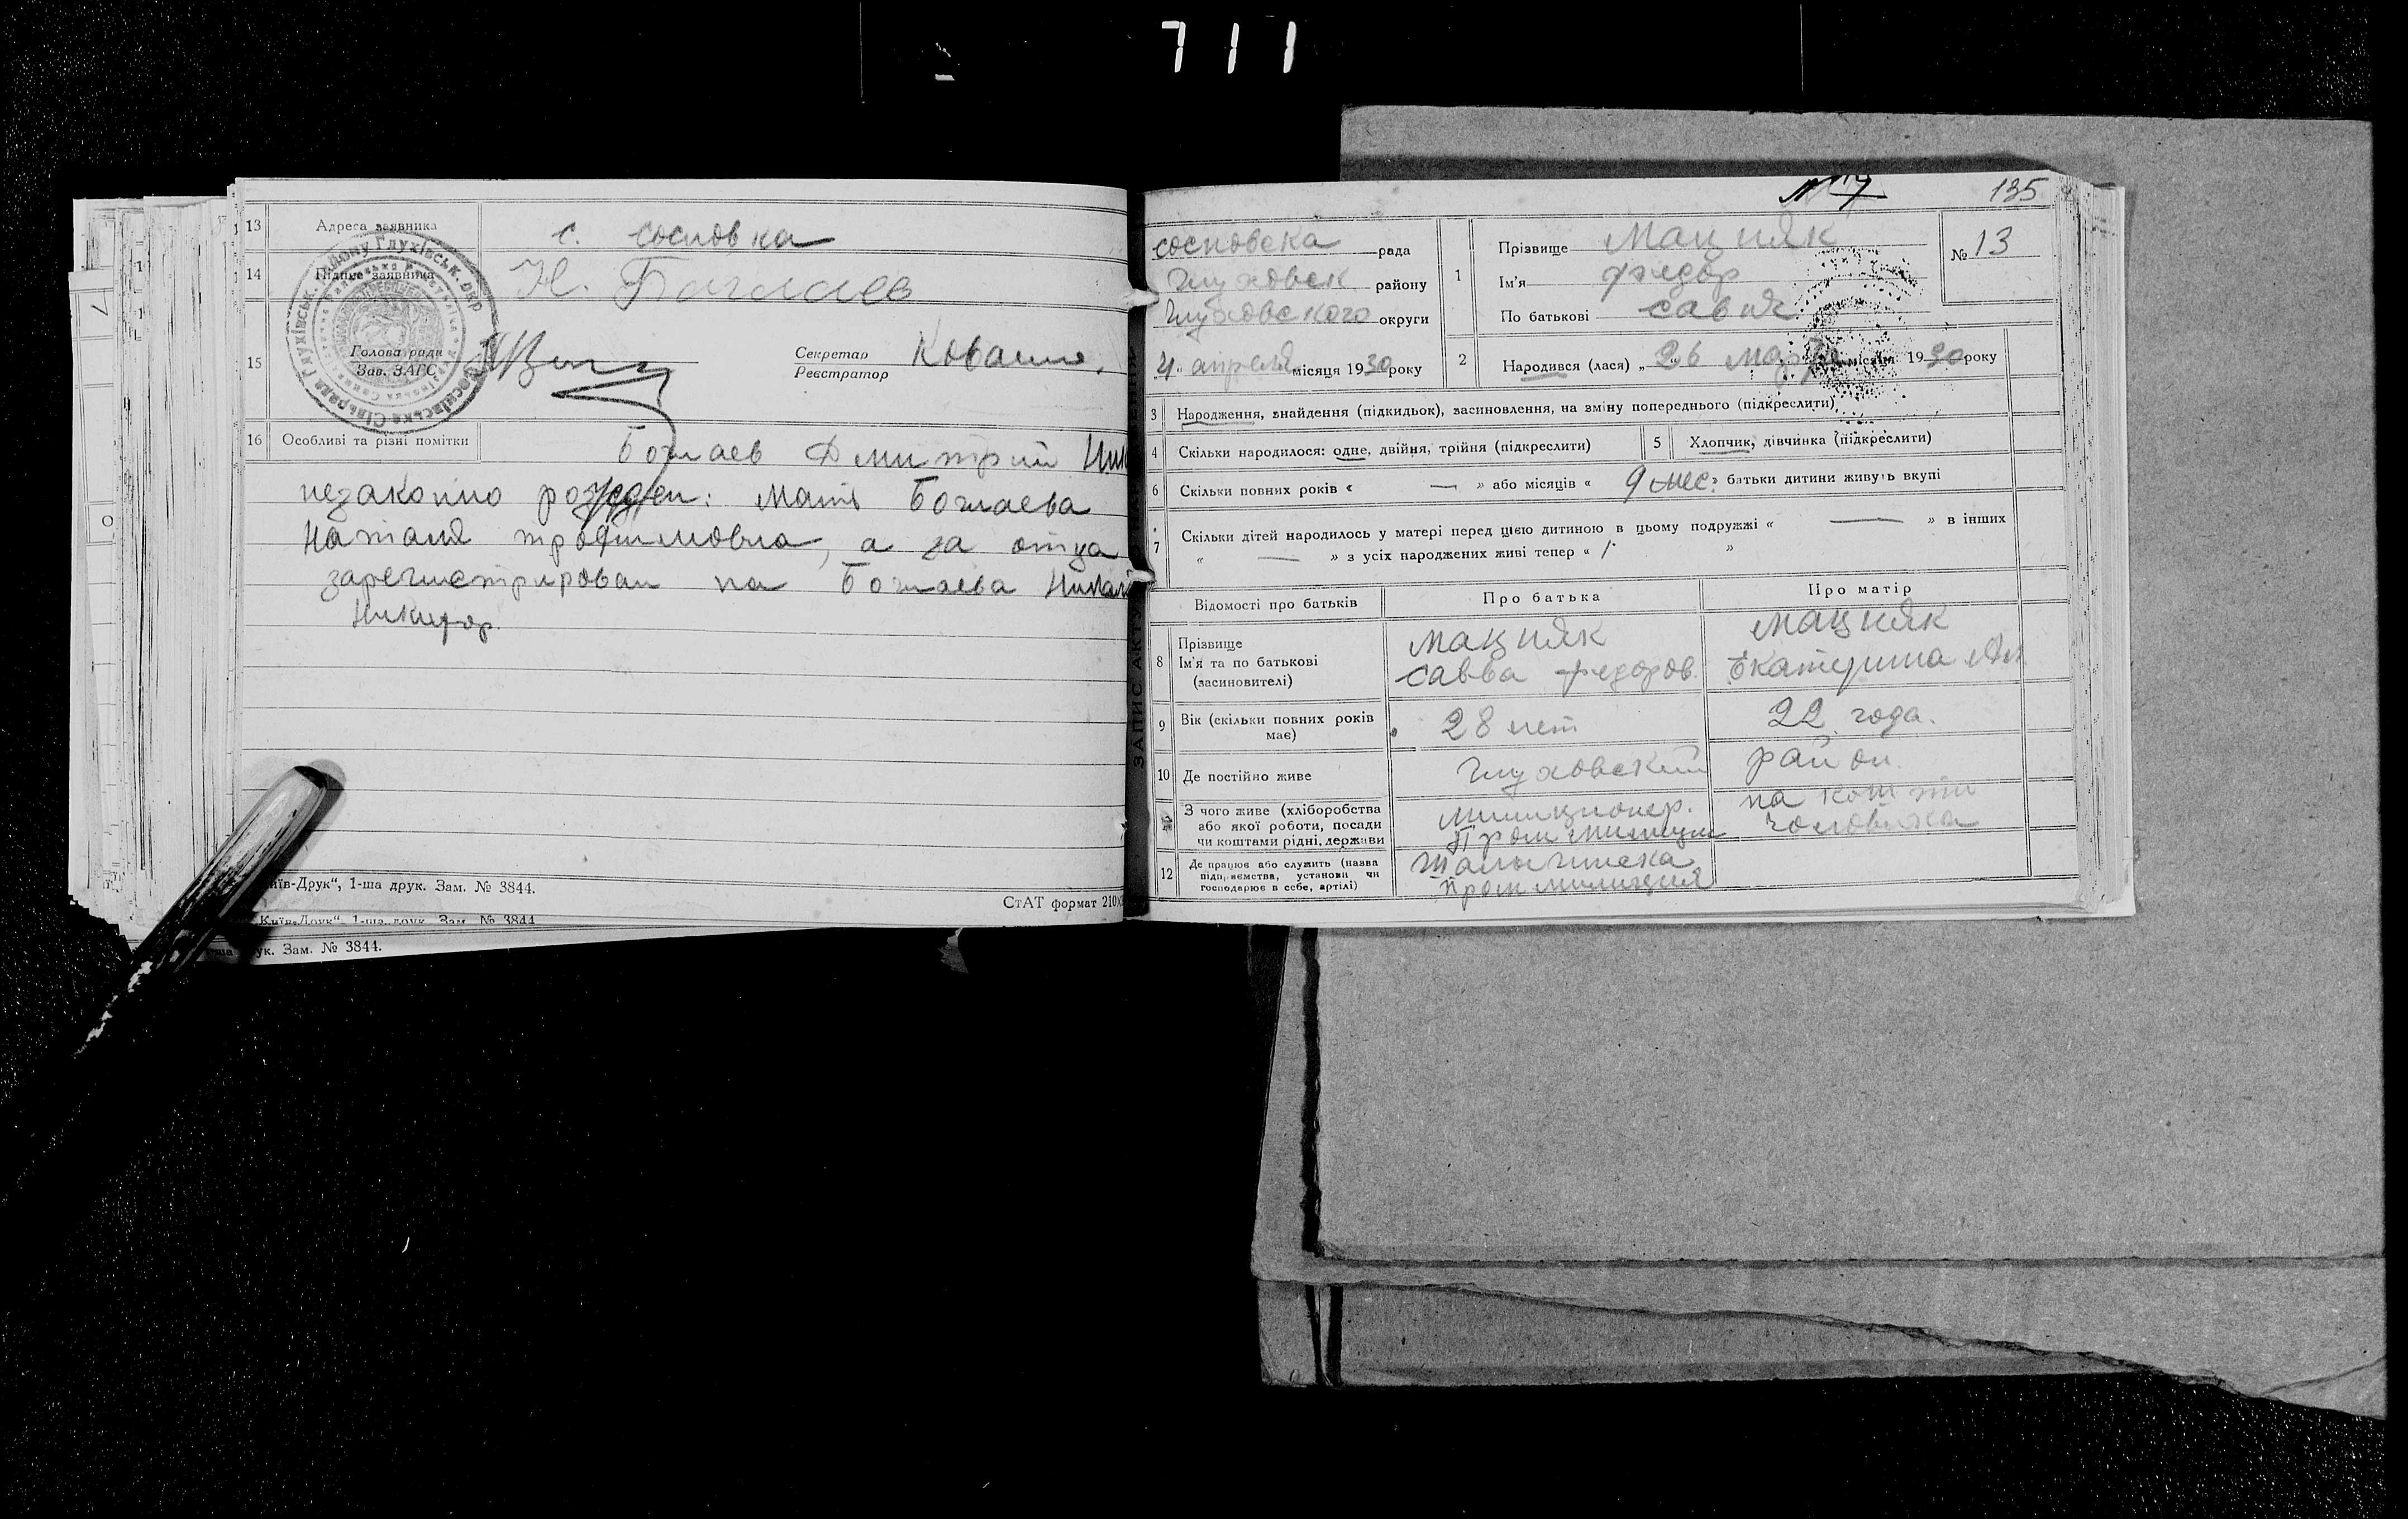 711
13 Адреса заявника с. Сосновка
14 Підпис заявника Н. Баглаев
15 Голова ради
Зав. ЗАГС
Секретар
Реєстратор
16 Особливі та різні помітки Боглаев Дмитрий Ник
незаконно рожден: Мать Боглаева
Наталя трофимовна, а за отца
зарегистрирован на Боглаева Никол
Никифор.
Київ-Друк“, 1-ша друк. Зам. № 3844.
СтАТ формат 210
Київ-Друк“, 1-ша друк. Зам. № 3844
ук. Зам. № 3844.
ЗАПИС АКТУ
135
сосновска рада
Глуховск району
Глуховского округи
4 „ апреля місяця 1930 року
1 Прізвище Мацняк
Ім'я федор
По батькові савич
№ 13
2 Народився (лася) „ 26 марта місяця 1930 року
3 Народження, знайдення (підкидьок), засиновлення, на зміну попереднього (підкреслити)
4 Скільки народилося: одне, двійня, трійня (підкреслити) 5 Хлопчик, дівчинка (підкреслити)
6 Скільки повних років « — » або місяців « 9 мес. » батьки дитини живуть вкупі
7 Скільки дітей народилось у матері перед цією дитиною в цьому подружжі « — » в інших
« — » з усіх народжених живі тепер « 1 »
Відомості про батьків Про батька Про матір
8 Прізвище
Ім'я та по батькові
(засиновителі)
Мацняк
савва федоров.
Мацняк
Екатерина
9 Вік (скільки повних років
має)
28 лет 22 года.
10 Де постійно живе Глуховский район
З чого живе (хліборобства
або якої роботи, посади
чи коштами рідні, держави
милиционер.
Пром милиции
на кошти
чоловіка
12 Де працює або служить (назва
підприємства, установи чи
господарює в себе, артілі)
пром милиция